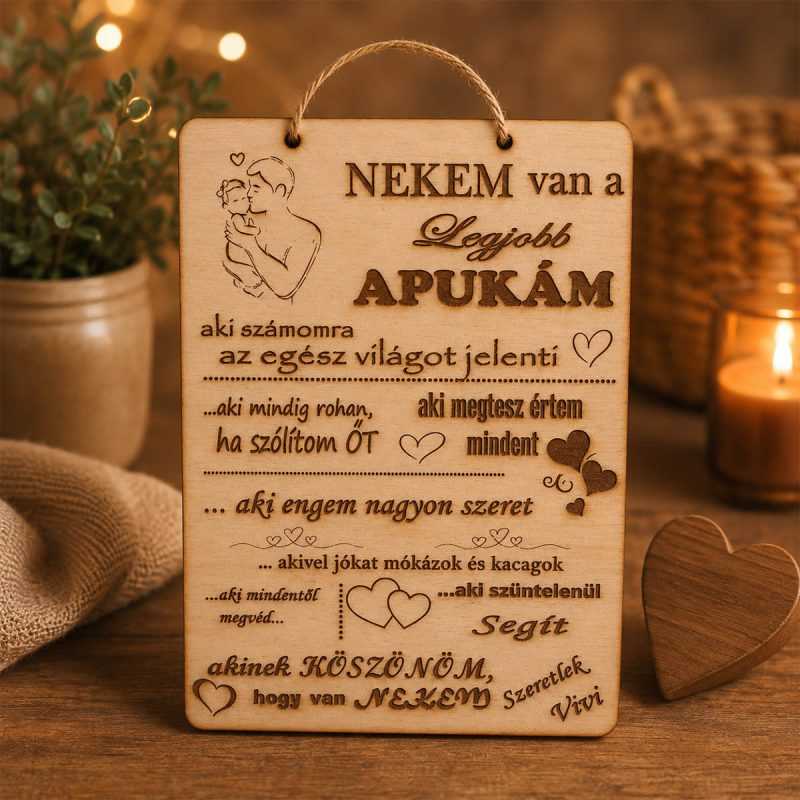 NEKEM van a
Legjobb
APUKÁM
aki számomra
az egész világot jelenti
...aki mindig rohan,
ha szólítom ŐT
aki megtesz értem
mindent
... aki engem nagyon szeret
... akivel jókat mókázok és kacagok
...aki mindentől
megvéd...
...aki szüntelenül
Segít
akinek KÖSZÖNÖM,
hogy van NEKEM
Szeretlek
Vivi